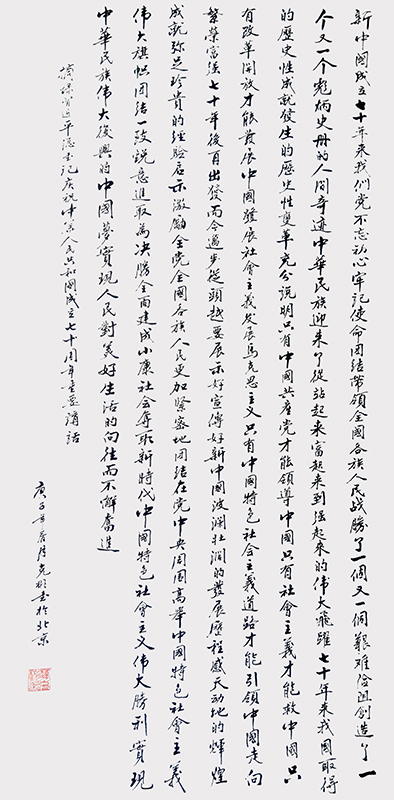 新中國成立七十年来我們党不忘初心牢記使命團结帶領全國各族人民战勝了一個又一個艱难险阻創造了一
个又一个彪炳史册的人间奇迹中華民族迎来了從站起来富起来到强起来的伟大飛躍七十年来我國取得
的歷史性成就發生的歷史性變革充分说明只有中國共產党才能領導中國只有社會主義才能救中國只
有改革開放才能發展中國發展社會主義发展馬克思主义只有中國特色社會主義道路才能引領中國走向
繁榮富强七十年後再出發而今邁步從頭越要展示好宣傳好新中國波瀾壮濶的發展歷程感天动地的輝煌
成就弥足珍貴的经验启示激励全党全國各族人民更加紧密地团结在党中央周围高举中國特色社會主義
伟大旗帜团结一致锐意進取為决勝全面建成小康社会夺取新時代中國特色社會主义伟大勝利實现
中華民族伟大復興的中國夢實现人民對美好生活的向往而不懈奮進
摘录習近平总书记庆祝中華人民共和國成立七十周年重要講話
庚子年 书於北京